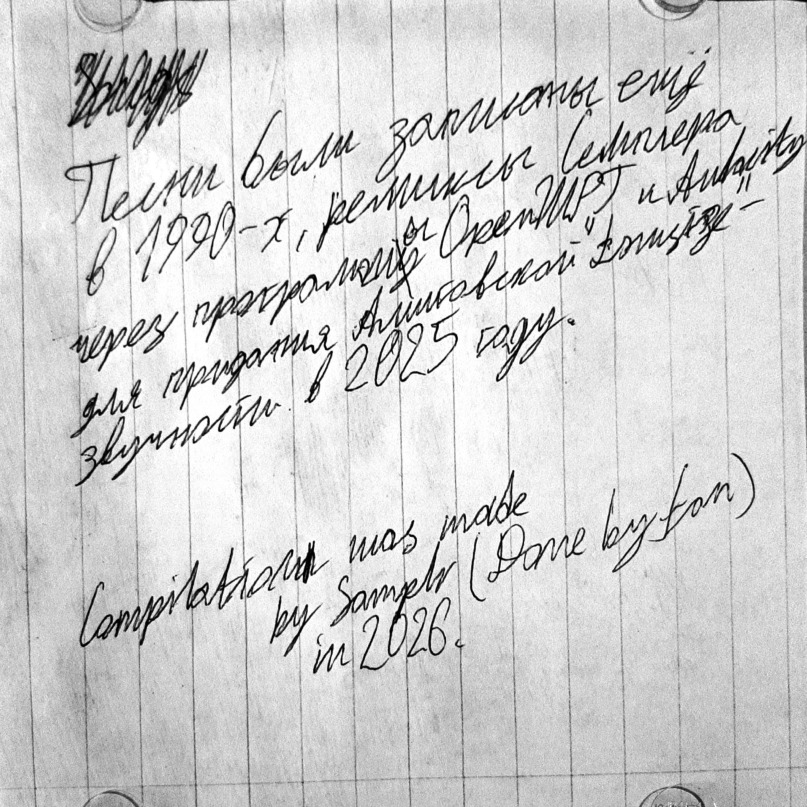 Песни были записаны ещё
в 1990-х, ремиксы Семплера
через программы OpenMPT и Audacity
для придания Амиговской "
звучности в 2025 году.
Compilation was made
by Samplr (Done by fan)
in 2026.